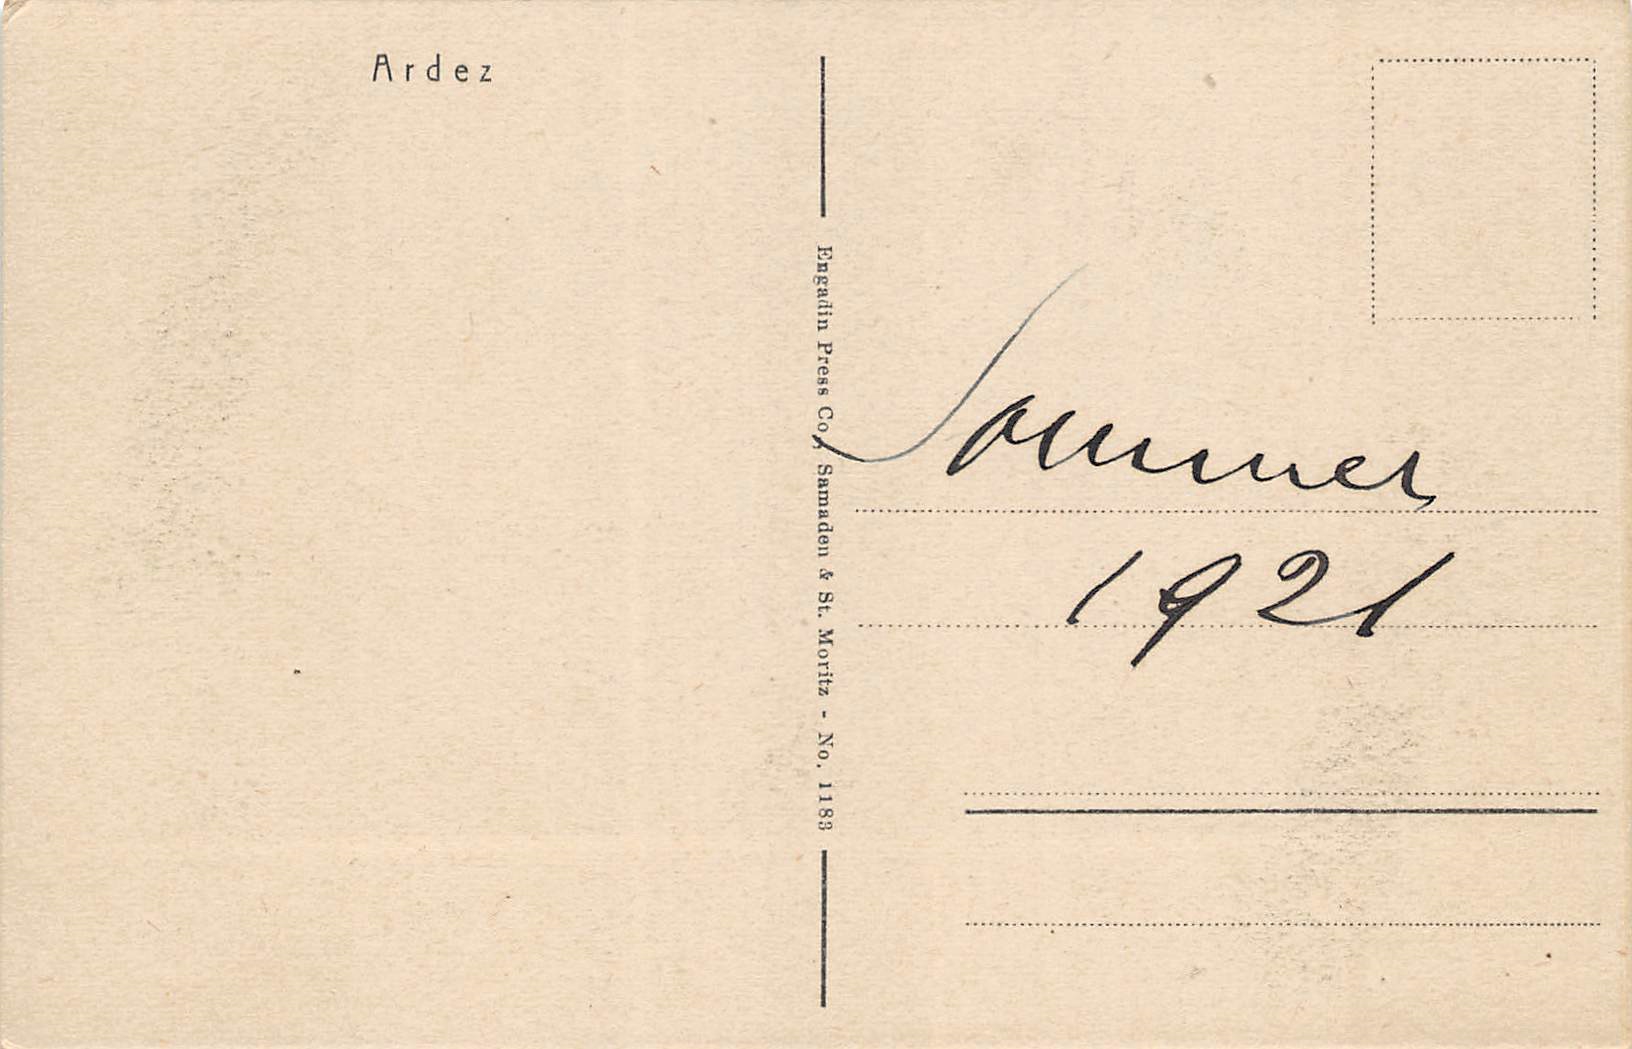 Ardez
Engadin Press Co., Samaden & St. Moritz - No. 1183
Sommer
1921